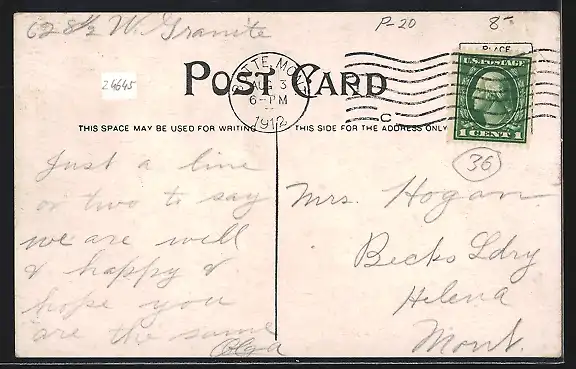 628½ W. Granite
P-20
8-
PLACE
24645
POST CARD
BUTTE, MONT.
AUG 3
6-PM
1912
C
U.S. POSTAGE
1 CENT 1
THIS SPACE MAY BE USED FOR WRITING
THIS SIDE FOR THE ADDRESS ONLY
36
Just a line
or two to say
we are well
& happy &
hope you
are the same
Olga
Mrs. Hogan
Becks Ldry
Helena
Mont.